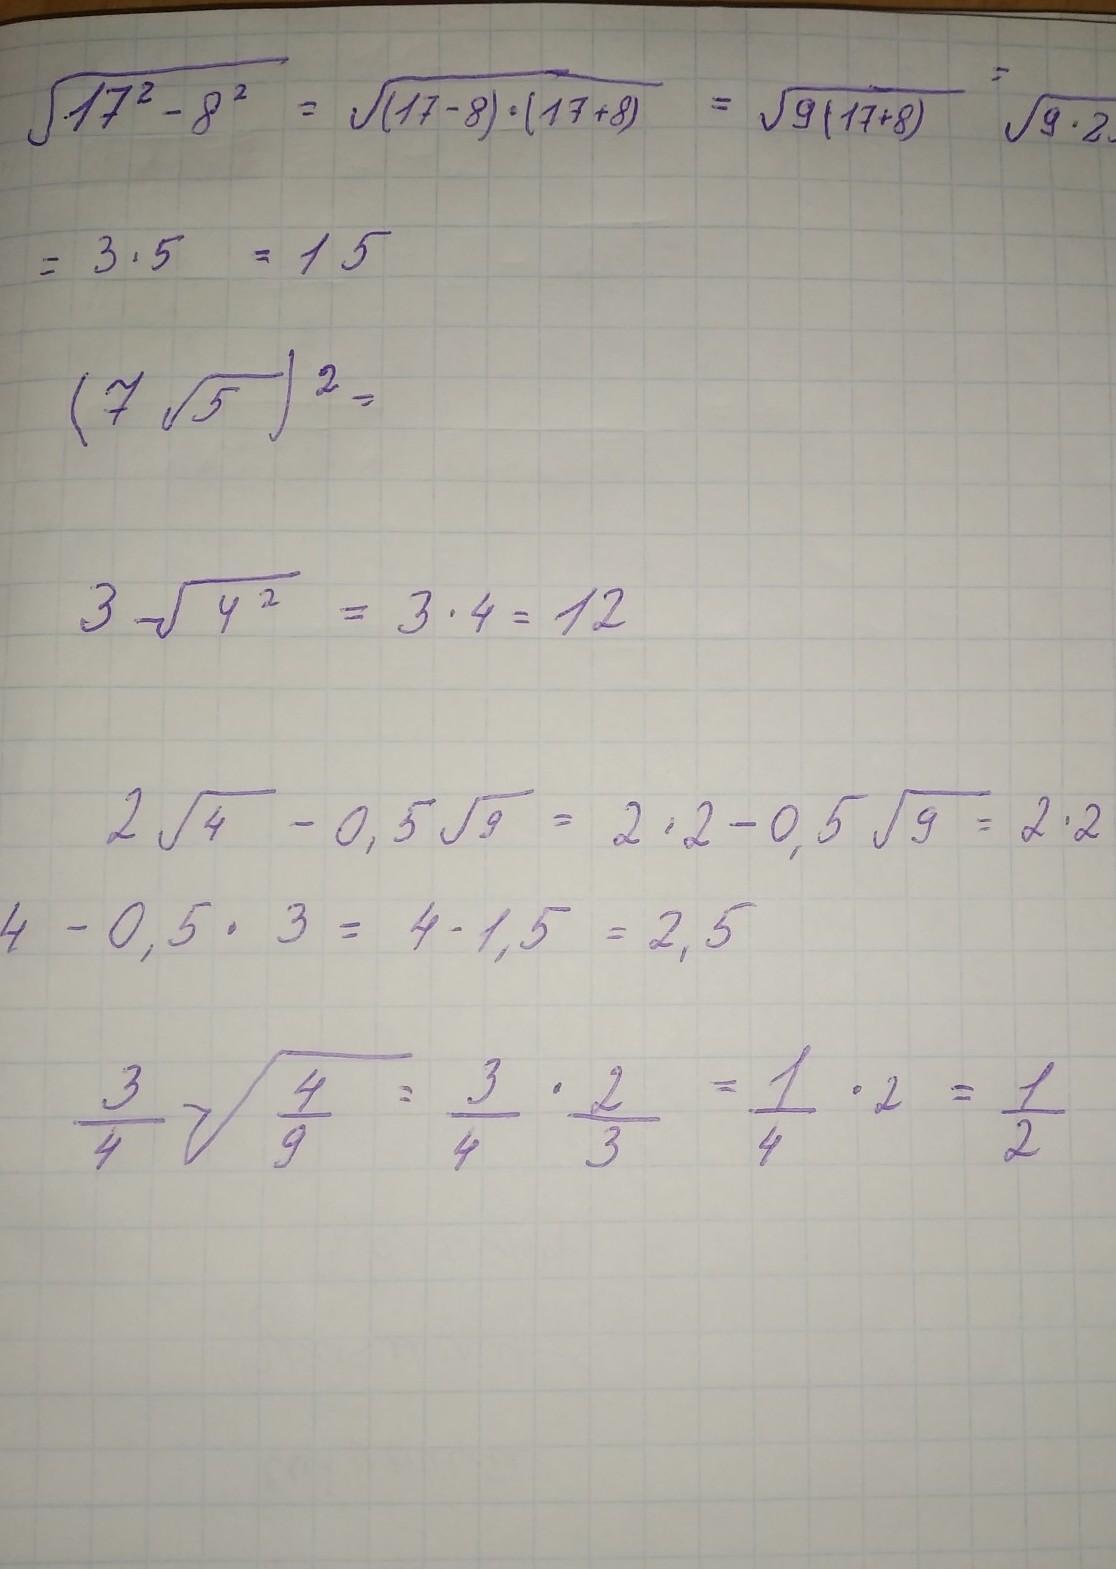 √(17² - 8²) = √((17-8)·(17+8)) = √(9(17+8)) = √(9·2
= 3·5 = 15
(7√5)² =
3√(4²) = 3·4 = 12
2√4 - 0,5√9 = 2·2 - 0,5√9 = 2·2
4 - 0,5·3 = 4 - 1,5 = 2,5
3/4 √(4/9) = 3/4 · 2/3 = 1/4 · 2 = 1/2